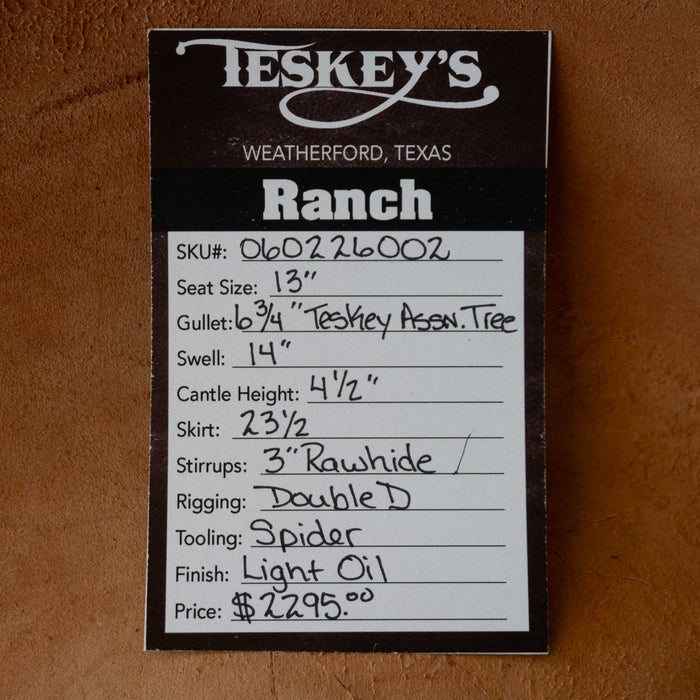 TESKEY'S
WEATHERFORD, TEXAS
Ranch
SKU#: 060226002
Seat Size: 13"
Gullet: 6 3/4" Teskey Assn. Tree
Swell: 14"
Cantle Height: 4 1/2"
Skirt: 23 1/2
Stirrups: 3" Rawhide /
Rigging: Double D
Tooling: Spider
Finish: Light Oil
Price: $2295.00